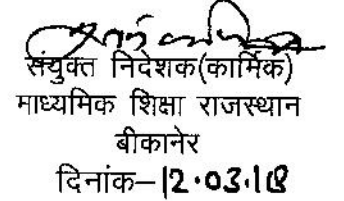 संयुक्त निदेशक(कार्मिक)
माध्यमिक शिक्षा राजस्थान
बीकानेर
दिनांक–12.03.18